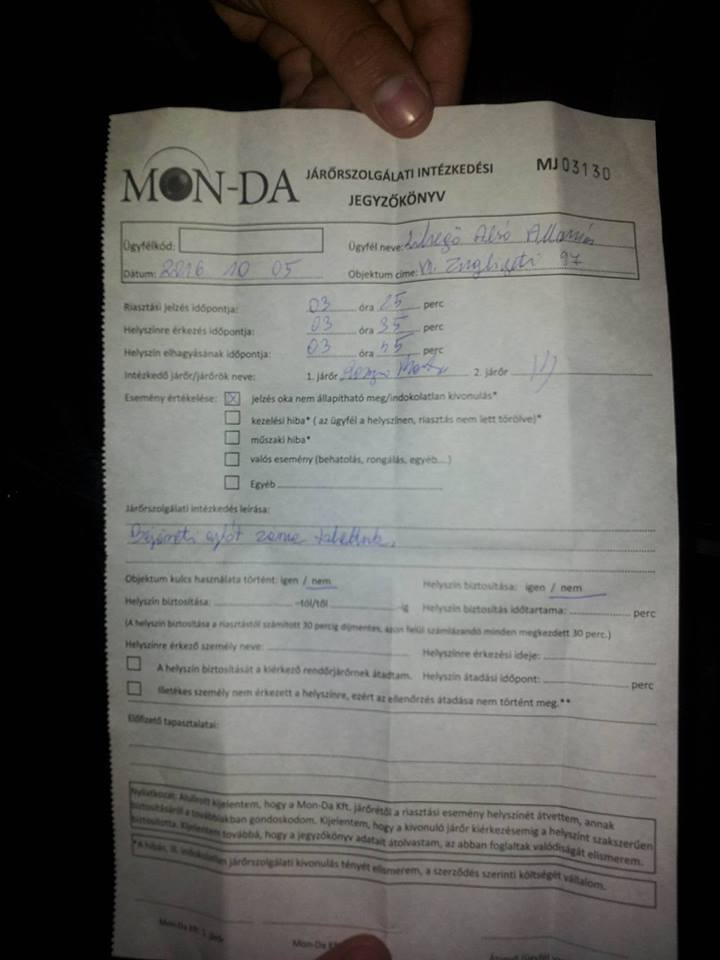 MON-DA
JÁRŐRSZOLGÁLATI INTÉZKEDÉSI
JEGYZŐKÖNYV
MJ 03130
Ügyfélkód:
Ügyfél neve: Alsó
Dátum: 2016 10 05
Objektum címe: Zugligeti 97
Riasztási jelzés időpontja: 03 óra 25 perc
Helyszínre érkezés időpontja: 03 óra 35 perc
Helyszín elhagyásának időpontja: 03 óra 45 perc
Intézkedő járőr/járőrök neve: 1. járőr 2. járőr
Esemény értékelése: jelzés oka nem állapítható meg/indokolatlan kivonulás*
kezelési hiba* ( az ügyfél a helyszínen, riasztás nem lett törölve)*
műszaki hiba*
valós esemény (behatolás, rongálás, egyéb...)
Egyéb
Járőrszolgálati intézkedés leírása:
Bejárati ajtót zárva találtuk.
Objektum kulcs használata történt: igen / nem
Helyszín biztosítása: igen / nem
Helyszín biztosítása: -tól/től -ig
Helyszín biztosítás időtartama: perc
(A helyszín biztosítása a riasztástól számított 30 percig díjmentes, azon felül számlázandó minden megkezdett 30 perc.)
Helyszínre érkező személy neve:
Helyszínre érkezési ideje:
A helyszín biztosítását a kiérkező rendőrjárőrnek átadtam.
Helyszín átadási időpont: perc
Illetékes személy nem érkezett a helyszínre, ezért az ellenőrzés átadása nem történt meg.**
Előfizető tapasztalatai:
Nyilatkozat: Alulírott kijelentem, hogy a Mon-Da Kft. járőrétől a riasztási esemény helyszínét átvettem, annak
biztosításáról a továbbiakban gondoskodom. Kijelentem, hogy a kivonuló járőr kiérkezésemig a helyszínt szakszerűen
biztosította. Kijelentem továbbá, hogy a jegyzőkönyv adatait átolvastam, az abban foglaltak valódiságát elismerem.
*A hibás, ill. indokolatlan járőrszolgálati kivonulás tényét elismerem, a szerződés szerinti költségét vállalom.
Mon-Da Kft. 1. járőr
Mon-Da Kft